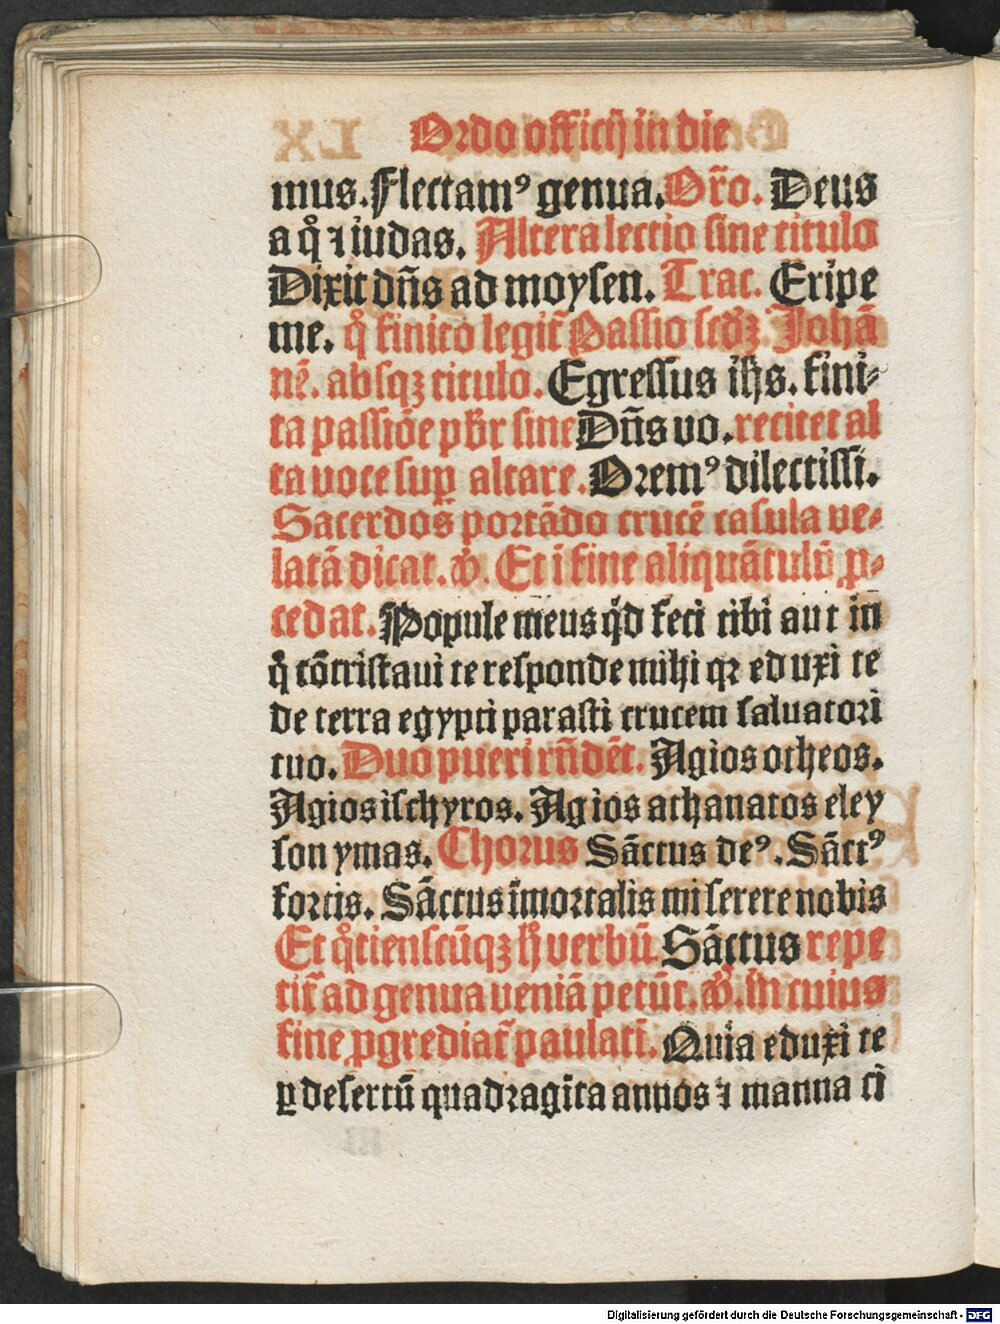 Ordo officij in die
mus. Flectamꝰ genua. Or̃o. Deus
a q̊ ⁊ iudas. Altera lectio sine titulo
Dixit dñs ad moysen. Trac. Eripe
me. q̊ finito legit᷑ Passio scd̃ꝫ Johã
nẽ. absqꝫ titulo. Egressus ihs̃. fini⸗
ta passiõe p̃br sine Dñs vo. recitet al
ta voce suꝑ altare. Oremꝰ dilectissi.
Sacerdos portãdo crucẽ casula ve⸗
latã dicat. ꝟ. Et ĩ fine aliquãtulũ ꝓ⸗
cedat. Popule meus qͥd feci tibi aut in
q̊ cõtristaui te responde mihi qꝛ eduxi te
de terra egypti parasti crucem saluatori
tuo. Duo pueri rñdẽt. Agios otheos.
Agios ischyros. Agios athanatos eley
son ymas. Chorus Sãctus deꝰ. Sãctꝰ
fortis. Sãctus ĩmortalis miserere nobis
Et q̊tienscũqꝫ h̊ verbũ Sãctus repe
tit᷑ ad genua veniã petũt. ꝟ. in cuius
fine ꝓgrediat᷑ paulatĩ. Quia eduxi te
ꝑ desertũ quadragĩta annos ⁊ manna ci
Digitalisierung gefördert durch die Deutsche Forschungsgemeinschaft - DFG